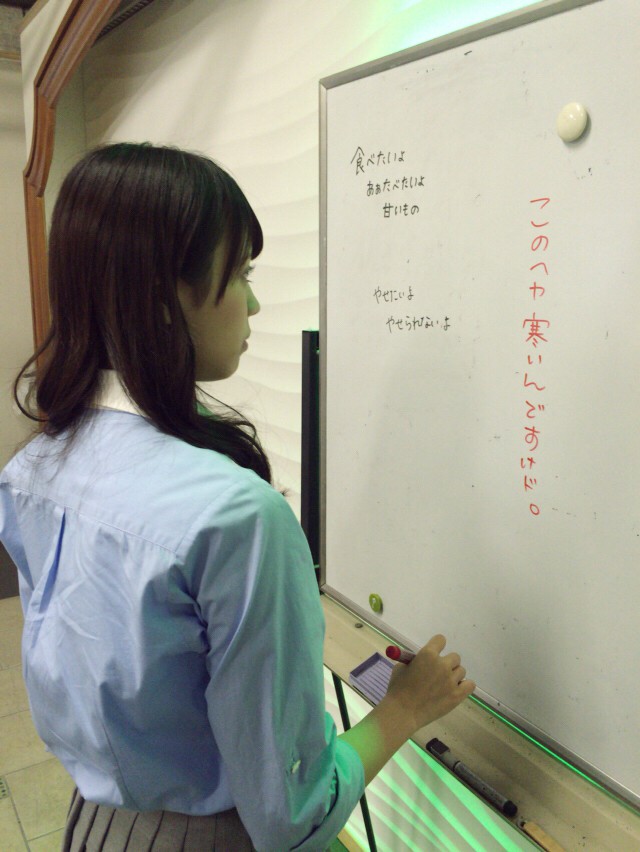 食べたいよ
あぁたべたいよ
甘いもの
やせたいよ
やせられないよ
このヘヤ寒いんですけど。